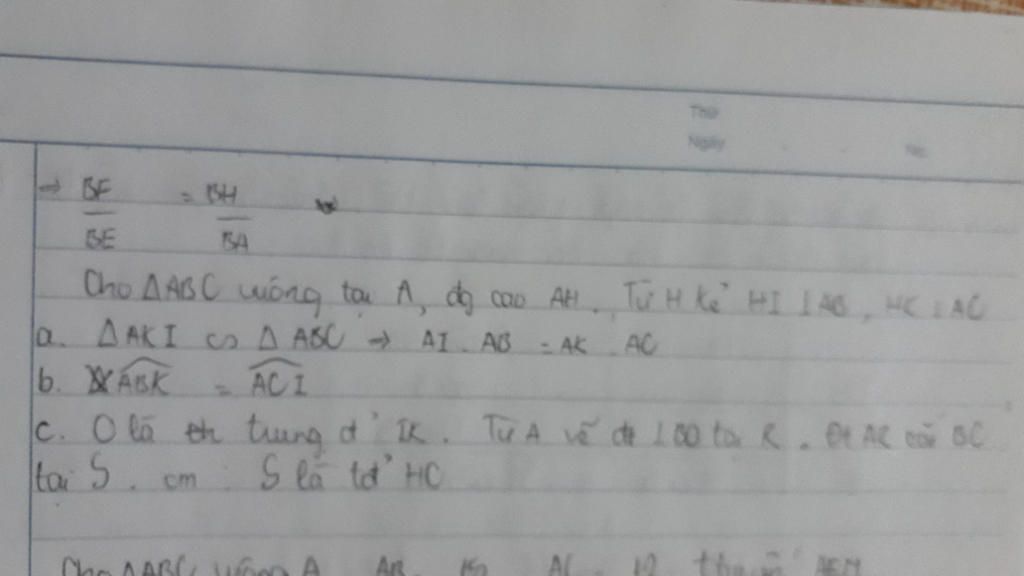 Thứ
Ngày No.
→ BF/BE = BH/BA
Cho ΔABC vuông tại A, đg cao AH. Từ H kẻ HI ⊥ AB, HK ⊥ AC
a. ΔAKI ∽ ΔABC → AI . AB = AK . AC
b. ABK = ACI
c. O là trung đ' IK. Từ A vẽ đt ⊥ BO tại R. Đt AR cắt BC
tại S. cm : S là tđ' HC
Cho ΔABC vuông A AB AC